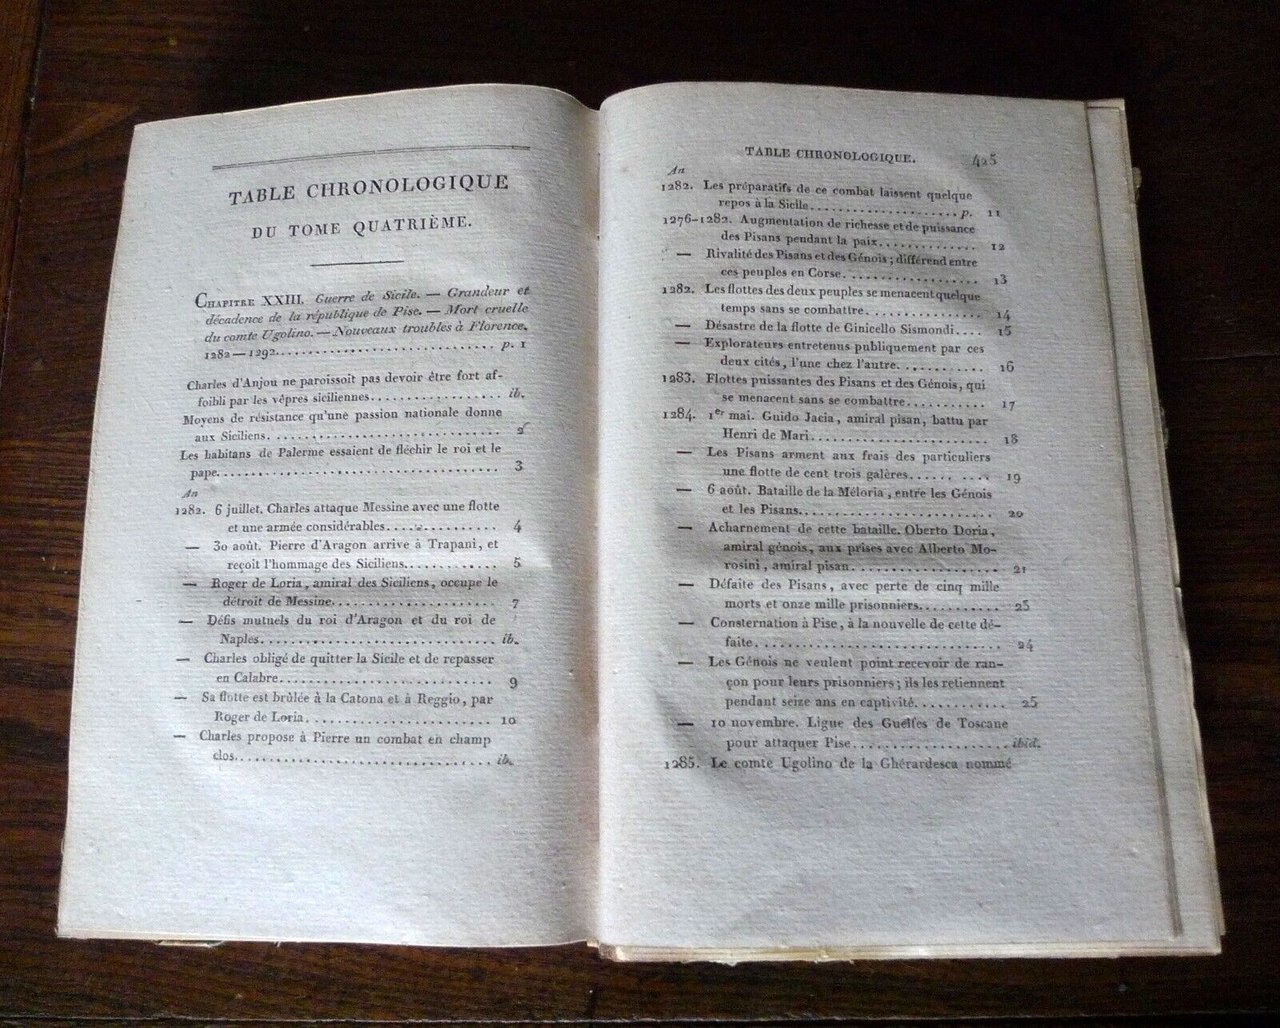 TABLE CHRONOLOGIQUE
DU TOME QUATRIÈME.
CHAPITRE XXIII. Guerre de Sicile. — Grandeur et
décadence de la république de Pise. — Mort cruelle
du comte Ugolino. — Nouveaux troubles à Florence.
1282 — 1292.................................. p. 1
Charles d'Anjou ne paroissoit pas devoir être fort af-
foibli par les vêpres siciliennes.................. ib.
Moyens de résistance qu'une passion nationale donne
aux Siciliens. ................................ 2
Les habitans de Palerme essaient de fléchir le roi et le
pape........................................ 3
An
1282. 6 juillet. Charles attaque Messine avec une flotte
et une armée considérables................ 4
— 30 août. Pierre d'Aragon arrive à Trapani, et
reçoit l'hommage des Siciliens............. 5
— Roger de Loria, amiral des Siciliens, occupe le
détroit de Messine....................... 7
— Défis mutuels du roi d'Aragon et du roi de
Naples.................................. ib.
— Charles obligé de quitter la Sicile et de repasser
en Calabre............................... 9
— Sa flotte est brûlée à la Catona et à Reggio, par
Roger de Loria........................... 10
— Charles propose à Pierre un combat en champ
clos..................................... ib.
TABLE CHRONOLOGIQUE. 425
An
1282. Les préparatifs de ce combat laissent quelque
repos à la Sicile..................... p. 11
1276-1282. Augmentation de richesse et de puissance
des Pisans pendant la paix.............. 12
— Rivalité des Pisans et des Génois; différend entre
ces peuples en Corse................... 13
1282. Les flottes des deux peuples se menacent quelque
temps sans se combattre................. 14
— Désastre de la flotte de Ginicello Sismondi.... 15
— Explorateurs entretenus publiquement par ces
deux cités, l'une chez l'autre............. 16
1283. Flottes puissantes des Pisans et des Génois, qui
se menacent sans se combattre........... 17
1284. 1er mai. Guido Jacia, amiral pisan, battu par
Henri de Mari......................... 18
— Les Pisans arment aux frais des particuliers
une flotte de cent trois galères............ 19
— 6 août. Bataille de la Méloria, entre les Génois
et les Pisans............................ 20
— Acharnement de cette bataille. Oberto Doria,
amiral génois, aux prises avec Alberto Mo-
rosini, amiral pisan..................... 21
— Défaite des Pisans, avec perte de cinq mille
morts et onze mille prisonniers........... 23
— Consternation à Pise, à la nouvelle de cette dé-
faite................................... 24
— Les Génois ne veulent point recevoir de ran-
çon pour leurs prisonniers; ils les retiennent
pendant seize ans en captivité............ 25
— 10 novembre. Ligue des Guelfes de Toscane
pour attaquer Pise...................... ibid.
1285. Le comte Ugolino de la Ghérardesca nommé